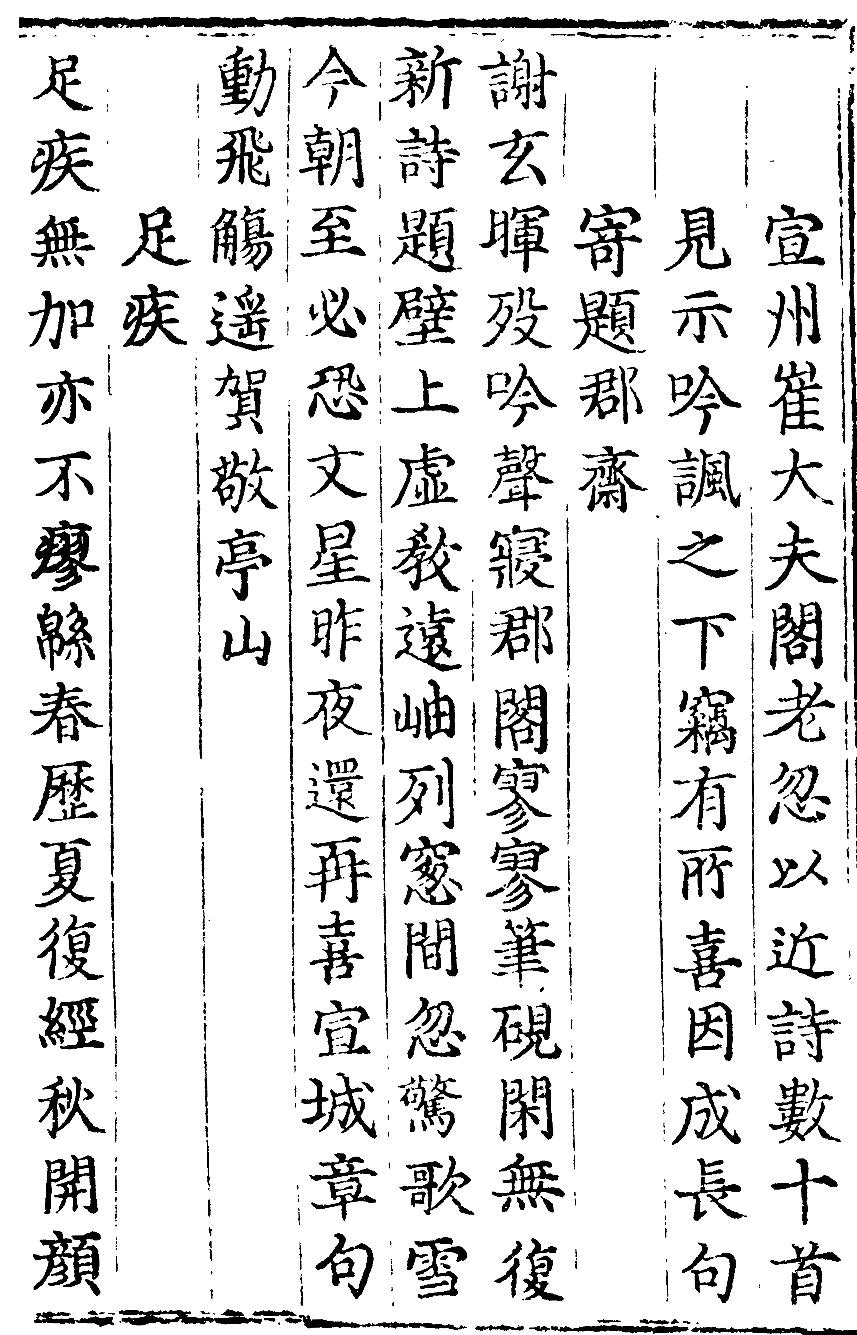 宣州崔大夫閣老忽以近詩數十首
見示吟諷之下竊有所喜因成長句
寄題郡齋
謝玄暉歿吟聲寢郡閣寥寥筆硯閑無復
新詩題壁上虛教遠岫列窓間忽驚歌雪
今朝至必恐文星昨夜還再喜宣城章句
動飛觴遥賀敬亭山
足疾
足疾無加亦不瘳緜春歷夏復經秋開顔